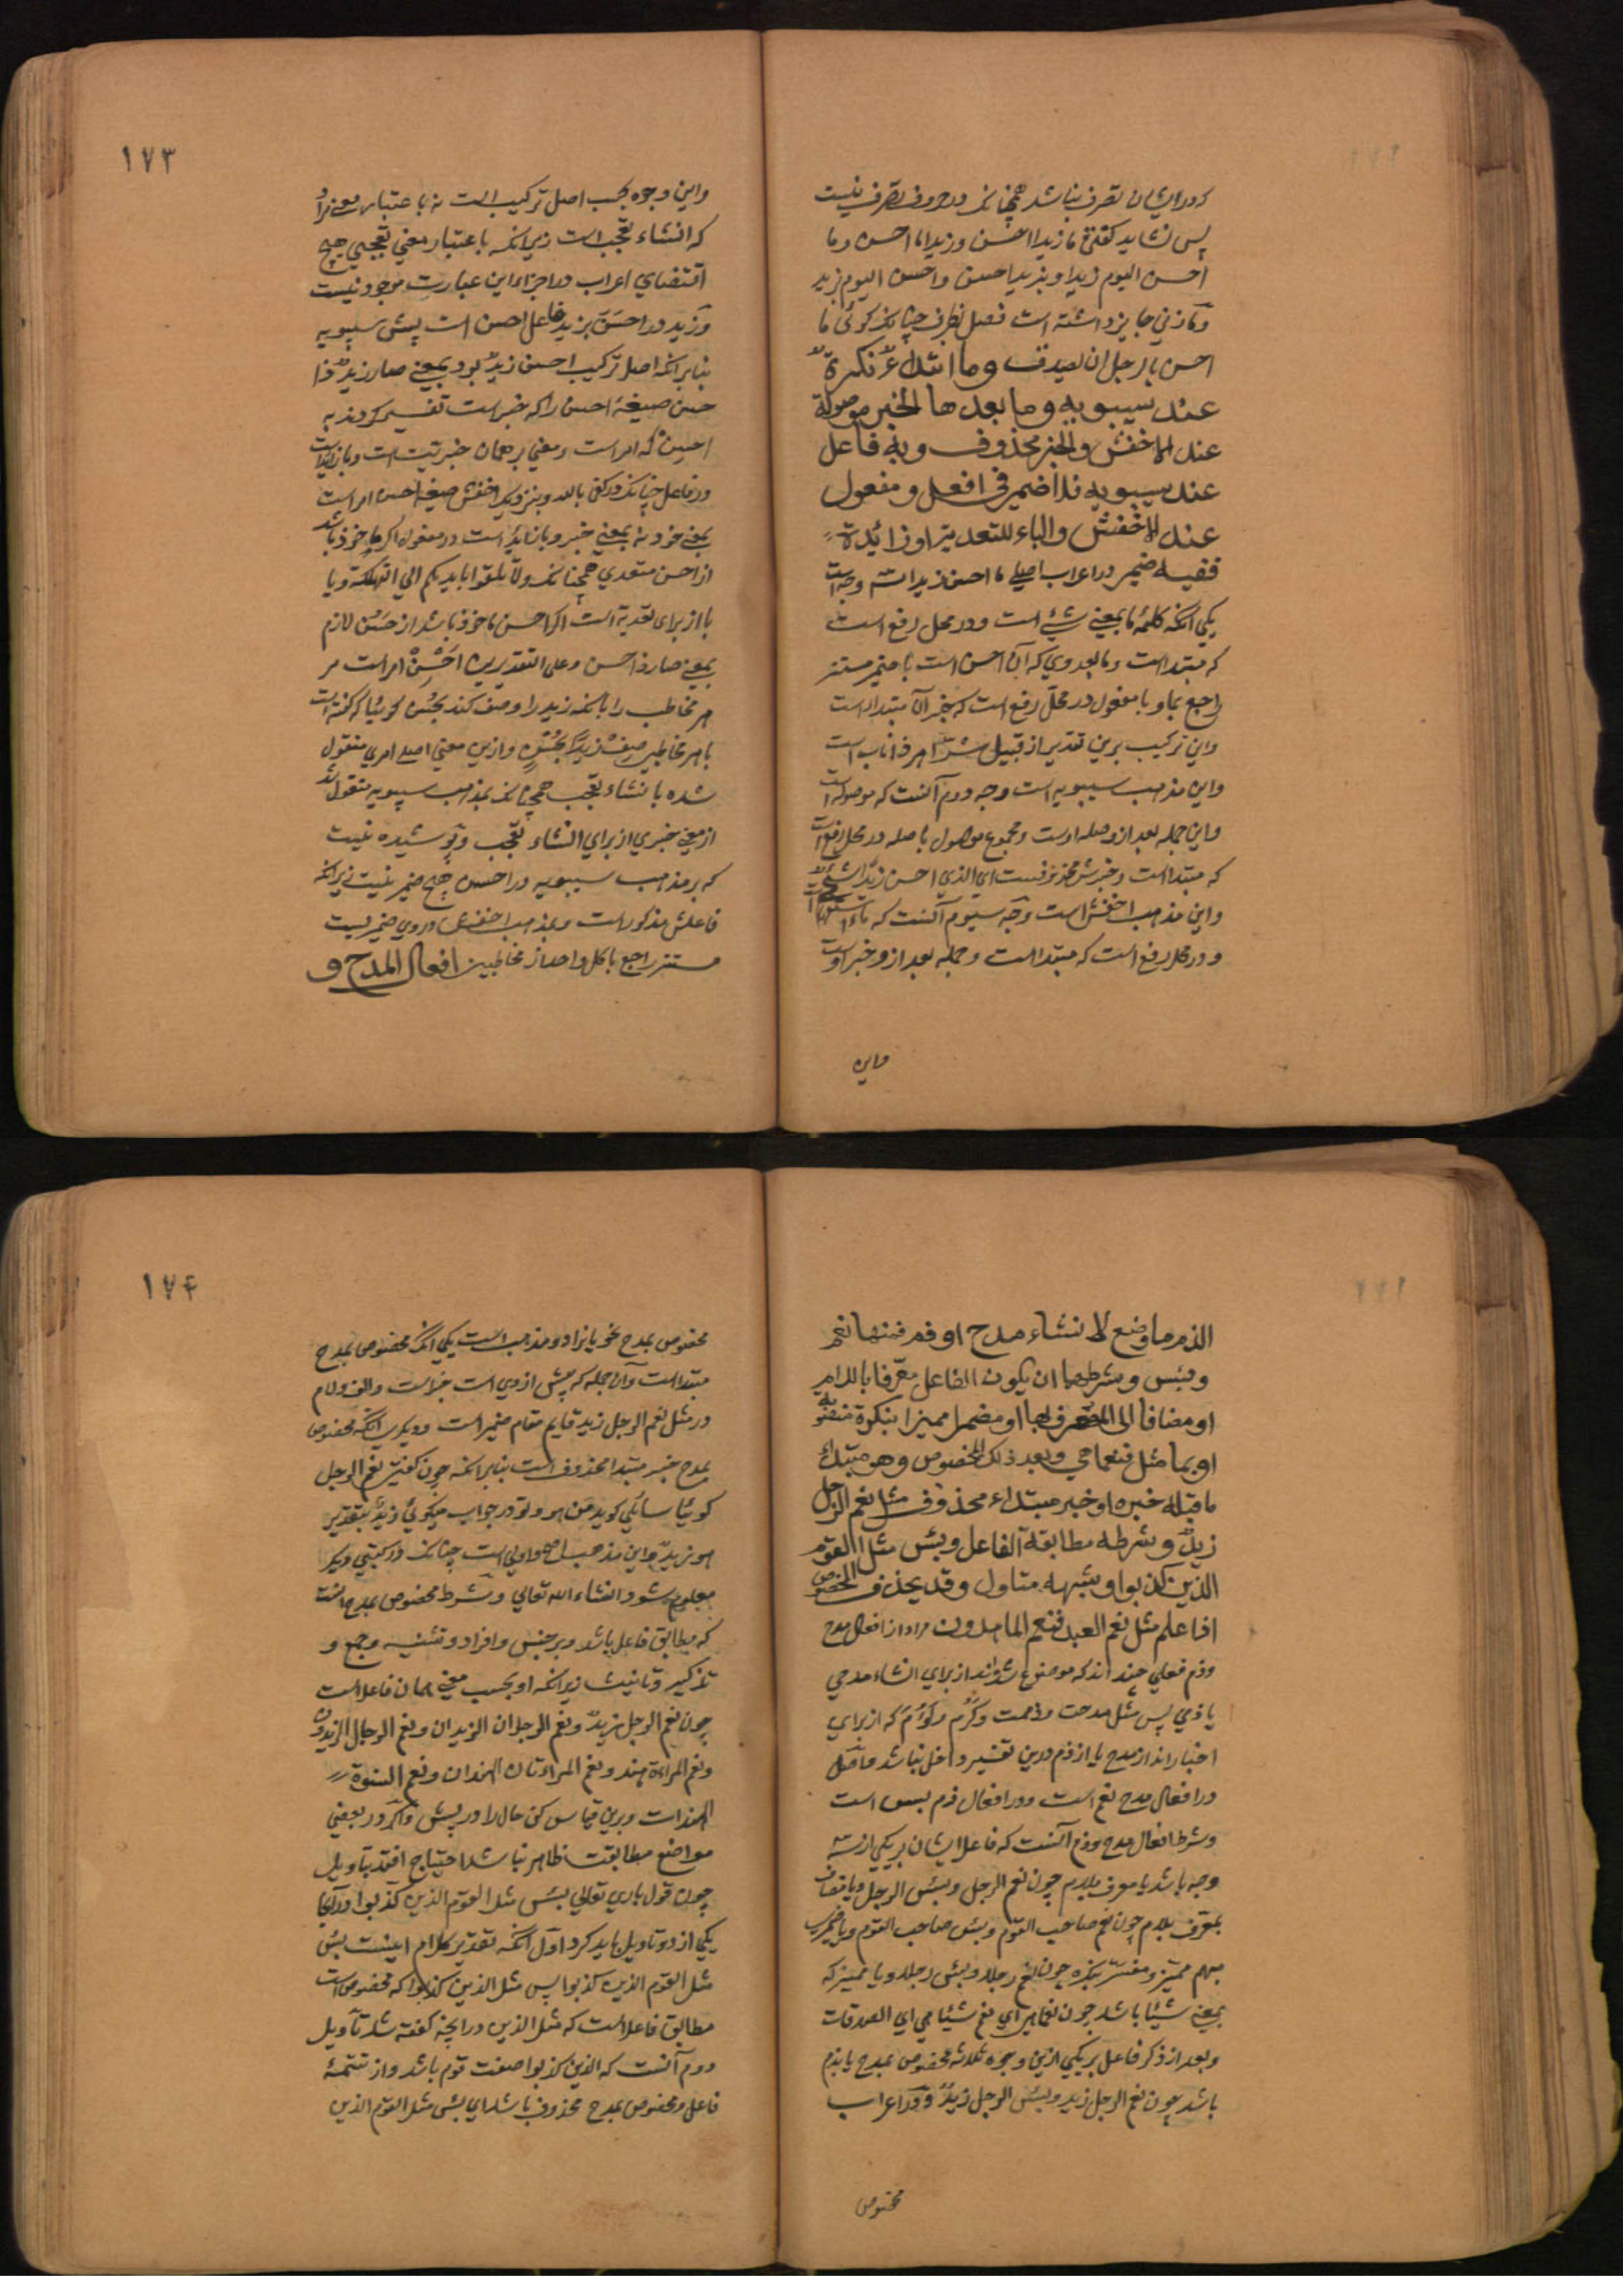 که در ایشان تصرف نباشد همچنانکه در حروف تصرف نیست
پس نشاید که گفتن ما زیدا احسن و زیدا ما احسن و ما
احسن الیوم زیدا و بزید احسن و احسن الیوم بزید
و مازنی جایز داشته است فصل بظرف چنانکه گوئی ما
احسن بالرجل ان یصدق وما ابتداء نكرة
عند سيبويه وما بعدها الخبر موصولة
عند الاخفش والخبر محذوف وبه فاعل
عند سيبويه فلا ضمير في افعل ومفعول
عند الاخفش والباء للتعدية او زائدة
ففيه ضمير در اعراب اصلی ما احسن زیدا سه وجه است
یکی آنکه کلمهٔ ما بمعنی شیء است و در محل رفع است
که مبتداست و ما بعد وی که آن احسن است با ضمیر مستتر
راجع بما و با مفعول در محل رفع است که خبر آن مبتداست
و این ترکیب برین تقدیر از قبیل شر اهر ذا ناب است
و این مذهب سیبویه است وجه دوم آنست که موصوله است
و این جمله بعد از و صله اوست و مجموع موصول با صله در محل رفع است
که مبتداست و خبرش محذوفست ای الذی احسن زیدا شیء
و این مذهب اخفش است وجه سیوم آنست که ما استفهامیه است
و در محل رفع است که مبتداست و جمله بعد از و خبر اوست
واین
۱۷۳
و این وجوه بحسب اصل ترکیب است نه باعتبار معنی مراد
که انشاء تعجب است زیرانکه باعتبار معنی تعجبی هیچ
اقتضای اعراب در اجزاء این عبارت موجود نیست
و زید در احسن بزید فاعل احسن است پیش سیبویه
بنابرانکه اصل ترکیب احسن زید بود بمعنی صار زید ذا
حسن صیغهٔ احسن را که خبر است تفسیر کردند به
احسن که امر است و معنی بر همان خبریت است و با زایده است
در فاعل چنانکه در کفی بالله و بنزدیک اخفش صیغه احسن امر است
بمعنی خود نه بمعنی خبر و با زاید است در مفعول اگر ماخوذ باشد
از احسن متعدی همچنانکه ولا تلقوا بایدیکم الی التهلکة و یا
با از برای تعدیه است اگر احسن ماخوذ باشد از حسن لازم
بمعنی صار ذا حسن و علی التقدیرین احسن امر است مر
هر مخاطب را بانکه زید را وصف کند بحسن گوئیا که گفته است
با هر مخاطبی صف زیدا بحسنه و ازین معنی اصلی امری منقول
شده بانشاء تعجب همچنانکه بمذهب سیبویه منقول شد
از معنی خبری از برای انشاء تعجب و پوشیده نیست
که بر مذهب سیبویه در احسن هیچ ضمیر نیست زیرانکه
فاعلش مذکور است و بمذهب اخفش در وی ضمیریست
مستتر راجع با کل واحد از مخاطبین افعال المدح و
الذم ما وضع لانشاء مدح او ذم فمنها نعم
وبئس وشرطهما ان يكون الفاعل معرفا باللام
او مضافا الى المعرف بها او مضمرا مميزا بنكرة منصوبة
او بما مثل فنعما هي وبعد ذلك المخصوص وهو مبتداء
ما قبله خبره او خبر مبتداء محذوف مثل نعم الرجل
زيد وشرطه مطابقة الفاعل وبئس مثل القوم
الذين كذبوا وشبهه متاول وقد يحذف المخصوص
اذا علم مثل نعم العبد فنعم الماهدون مراد از افعال مدح
و ذم فعلی چند اند که موضوع شده‌اند از برای انشاء مدحی
یا ذمی پس مثل مدحت و ذممت و کرم که از برای
اخبار اند از مدح یا از ذم درین تفسیر داخل نباشد و اصل
در افعال مدح نعم است و در افعال ذم بئس است
و شرط افعال مدح و ذم آنست که فاعل ایشان بر یکی از سه
وجه باشد یا معرف بلام چون نعم الرجل و بئس الرجل و یا مضاف
بمعرف بلام چون نعم صاحب القوم و بئس صاحب القوم و یا ضمیر
مبهم ممیز و مفسر بنکره چون نعم رجلا و بئس رجلا و یا ممیز که
بمعنی شیئا باشد چون نعما هی ای نعم شیئا هی ای الصدقات
و بعد از ذکر فاعل بر یکی ازین وجوه ثلاثه مخصوص بمدح یا بذم
باشد چون نعم الرجل زید و بئس الرجل زید و در اعراب
مخصوص
۱۷۴
مخصوص بمدح نحویانرا دو مذهب است یکی آنکه مخصوص بمدح
مبتداست و آن جمله که پیش از وی است خبر است و الف و لام
در مثل نعم الرجل زید قایم مقام ضمیر است و دیگری آنکه مخصوص
بمدح خبر مبتدا محذوف است بنابرانکه چون گفتی نعم الرجل
گوئیا سائلی گوید من هو و تو در جواب میگوئی زید بتقدیر
هو زید و این مذهب اصح و اولی است چنانکه در کتبی دیگر
معلوم شود انشاء الله تعالی و شرط مخصوص بمدح آنست
که مطابق فاعل باشد در جنس و افراد و تثنیه و جمع و
تذکیر و تانیث زیرانکه او بحسب معنی همان فاعل است
چون نعم الرجل زید و نعم الرجلان الزیدان و نعم الرجال الزیدون
و نعم المراءة هند و نعم المراءتان الهندان و نعم النسوة
الهندات و برین قیاس کن حال را در بئس و اگر در بعضی
مواضع مطابقت ظاهر نباشد احتیاج افتد بتاویل
چون قول باری تعالی بئس مثل القوم الذین کذبوا و در آنجا
یکی از دو تاویل باید کرد اول آنکه تقدیر کلام اینست بئس
مثل القوم الذین کذبوا پس مثل الذین کذبوا که مخصوص است
مطابق فاعل است که مثل الذین در آنچه گفته شد تاویل
دوم آنست که الذین کذبوا صفت قوم باشد و از تتمهٔ
فاعل و مخصوص بمدح محذوف باشد ای بئس مثل القوم الذین